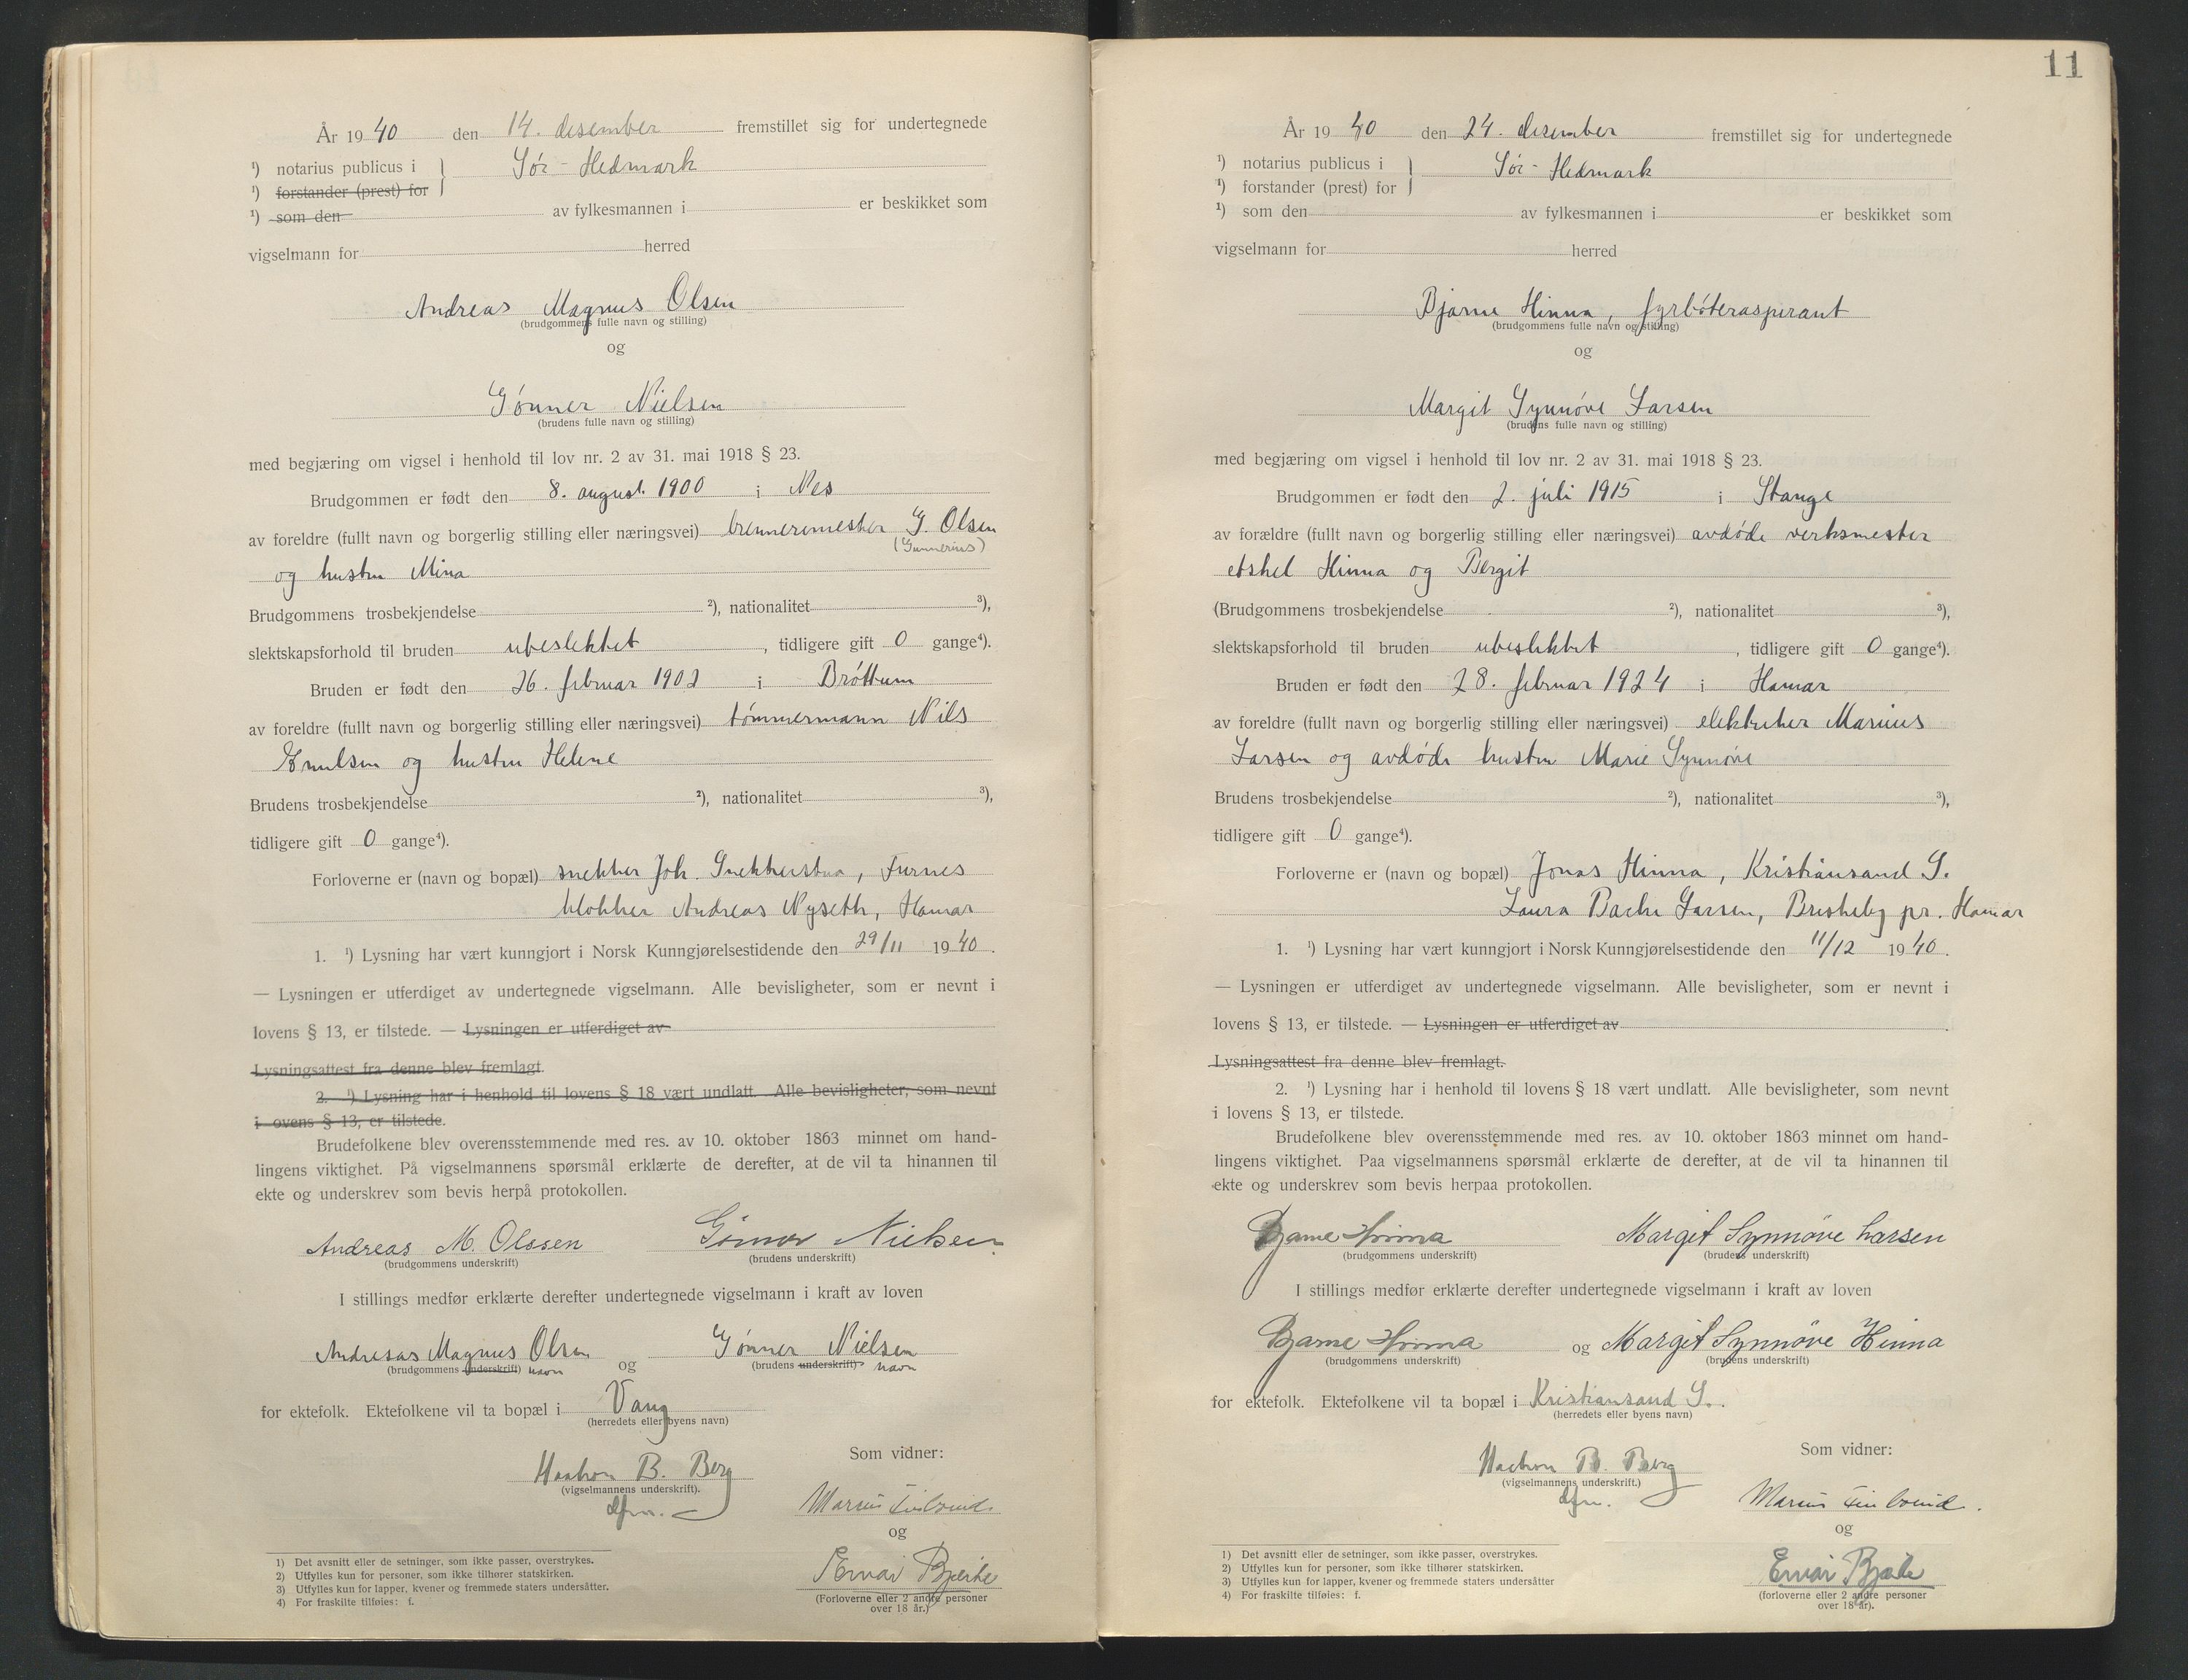 År 19 40 den 14. desember fremstillet sig for undertegnede
¹) notarius publicus i } Sør-Hedmark
¹) forstander (prest) for
¹) som den av fylkesmannen i er beskikket som
vigselmann for herred
Andreas Magnus Olsen
(brudgommens fulle navn og stilling)
og
Gønner Nielsen
(brudens fulle navn og stilling)
med begjæring om vigsel i henhold til lov nr. 2 av 31. mai 1918 § 23.
Brudgommen er født den 8. august 1900 i Nes
av foreldre (fullt navn og borgerlig stilling eller næringsvei) brennerimester G. Olsen
(Gunnerius)
og hustru Mina
Brudgommens trosbekjendelse ²), nationalitet ³),
slektskapsforhold til bruden ubeslektet, tidligere gift 0 gange⁴).
Bruden er født den 26. februar 1902 i Brøttum
av foreldre (fullt navn og borgerlig stilling eller næringsvei) tømmermann Nils
Knutsen og hustru Helene
Brudens trosbekjendelse ²), nationalitet ³),
tidligere gift 0 gange⁴).
Forloverne er (navn og bopæl) snekker Joh. Snekkerstua, Furnes
klokker Andreas Nyseth, Hamar
1. ¹) Lysning har vært kunngjort i Norsk Kunngjørelsestidende den 29/11 19 40.
— Lysningen er utferdiget av undertegnede vigselmann. Alle bevisligheter, som er nevnt i
lovens § 13, er tilstede. — Lysningen er utferdiget av
Lysningsattest fra denne blev fremlagt.
2. ¹) Lysning har i henhold til lovens § 18 vært undlatt. Alle bevisligheter, som nevnt
i ovens § 13, er tilstede.
Brudefolkene blev overensstemmende med res. av 10. oktober 1863 minnet om hand-
lingens viktighet. På vigselmannens spørsmål erklærte de derefter, at de vil ta hinannen til
ekte og underskrev som bevis herpå protokollen.
Andreas M. Olssen Gønner Nielsen
(brudgommens underskrift) (brudens underskrift)
I stillings medfør erklærte derefter undertegnede vigselmann i kraft av loven
Andreas Magnus Olsen og Gønner Nielsen
(brudgommens underskrift) navn (brudens underskrift) navn
for ektefolk. Ektefolkene vil ta bopæl i Vang
(herredets eller byens navn)
Haakon B. Berg
(vigselmannens underskrift).
dfm.
Som vidner:
Marius
og
Einar Bjerke
(Forloverne eller 2 andre personer
over 18 år.)
1) Det avsnitt eller de setninger, som ikke passer, overstrykes.
2) Utfylles kun for personer, som ikke tilhører statskirken.
3) Utfylles kun for lapper, kvener og fremmede staters undersåtter.
4) For fraskilte tilføies: f.
11
År 19 40 den 24. desember fremstillet sig for undertegnede
¹) notarius publicus i } Sør-Hedmark
¹) forstander (prest) for
¹) som den av fylkesmannen i er beskikket som
vigselmann for herred
Bjarne Hinna, fyrbøteraspirant
(brudgommens fulle navn og stilling)
og
Margit Synnøve Larsen
(brudens fulle navn og stilling)
med begjæring om vigsel i henhold til lov nr. 2 av 31. mai 1918 § 23.
Brudgommen er født den 2. juli 1915 i Stange
av forældre (fullt navn og borgerlig stilling eller næringsvei) avdøde verksmester
Hinna og Bergit
(Brudgommens trosbekjendelse ²), nationalitet ³),
slektskapsforhold til bruden ubeslektet, tidligere gift 0 gange⁴).
Bruden er født den 28. februar 1924 i Hamar
av foreldre (fullt navn og borgerlig stilling eller næringsvei) elektriker Marius
Larsen og avdøde hustru Marie Synnøve
Brudens trosbekjendelse ²), nationalitet ³),
tidligere gift 0 gange⁴).
Forloverne er (navn og bopæl) Jonas Hinna, Kristiansand S.
Laura Bache Larsen, Briskeby pr. Hamar
1. ¹) Lysning har vært kunngjort i Norsk Kunngjørelsestidende den 11/12 19 40.
— Lysningen er utferdiget av undertegnede vigselmann. Alle bevisligheter, som er nevnt i
lovens § 13, er tilstede. — Lysningen er utferdiget av .
Lysningsattest fra denne blev fremlagt.
2. ¹) Lysning har i henhold til lovens § 18 vært undlatt. Alle bevisligheter, som nevnt
i lovens § 13, er tilstede.
Brudefolkene blev overensstemmende med res. av 10. oktober 1863 minnet om hand-
lingens viktighet. Paa vigselmannens spørsmål erklærte de derefter, at de vil ta hinannen til
ekte og underskrev som bevis herpaa protokollen.
Bjarne Hinna Margit Synnøve Larsen
(brudgommens underskrift) (brudens underskrift)
I stillings medfør erklærte derefter undertegnede vigselmann i kraft av loven
Bjarne Hinna og Margit Synnøve Hinna
(brudgommens underskrift) (brudens underskrift)
for ektefolk. Ektefolkene vil ta bopæl i Kristiansand S.
(herredets eller byens navn)
Haakon B. Berg
(vigselmannens underskrift.)
dfm.
Som vidner:
Marius
og
Einar Bjerke
(forloverne eller 2 andre personer
over 18 år).
1) Det avsnitt eller de setninger, som ikke passer, overstrykes.
2) Utfylles kun for personer, som ikke tilhører statskirken.
3) Utfylles kun for lapper, kvener og fremmede staters undersåtter
4) For fraskilte tilføies: f.